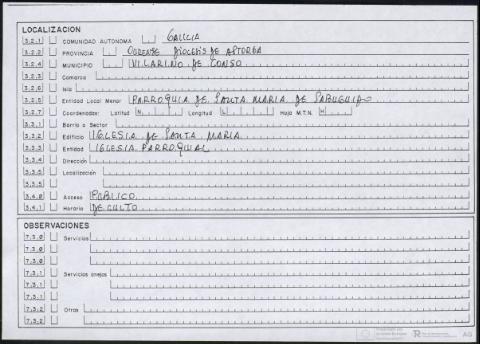 LOCALIZACION
3.2.1 COMUNIDAD AUTONOMA GALICIA
3.2.2 PROVINCIA ORENSE DIOCESIS DE ASTORGA
3.2.4 MUNICIPIO VILARIÑO DE CONSO
3.2.3 Comarca
3.2.6 Isla
3.2.5 Entidad Local Menor PARROQUIA DE SANTA MARIA DE SABUGUIDO
3.2.7 Coordenadas: Latitud N Longitud L Hoja M.T.N. H
3.3.1 Barrio o Sector
3.3.2 Edificio IGLESIA DE SANTA MARIA
3.3.3 Entidad IGLESIA PARROQUIAL
3.3.4 Dirección
3.3.5 Localización
3.3.5
3.4.0 Acceso PUBLICO
3.4.1 Horario DE CULTO
OBSERVACIONES
7.3.0 Servicios
7.3.0
7.3.0
7.3.1 Servicios anejos
7.3.1
7.3.1
7.3.2 Otros
7.3.2